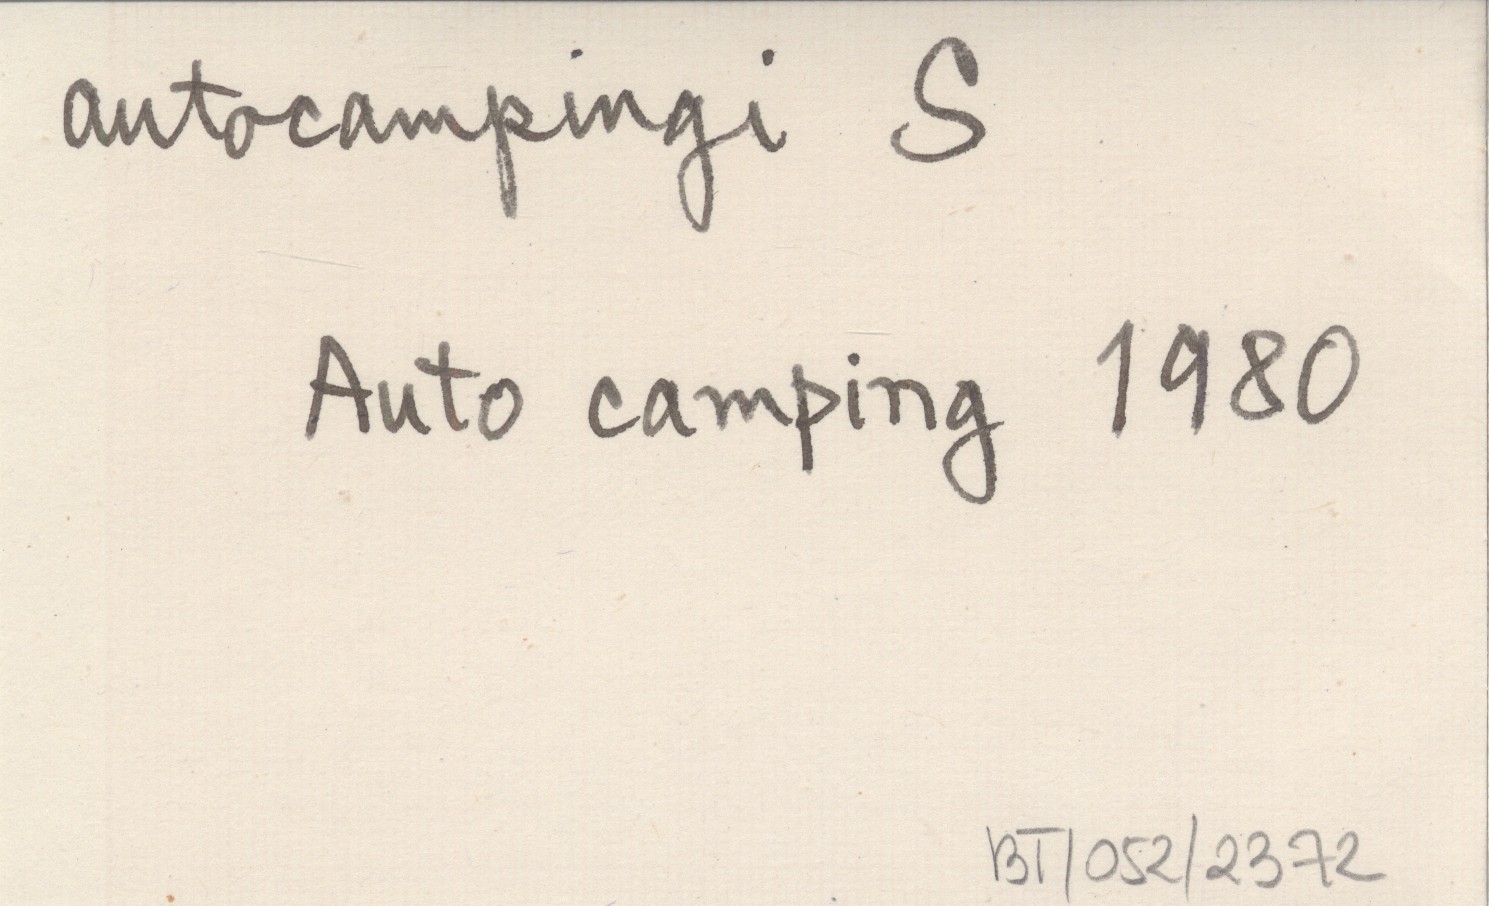 autocampingi S
Auto camping 1980
BT/052/2372